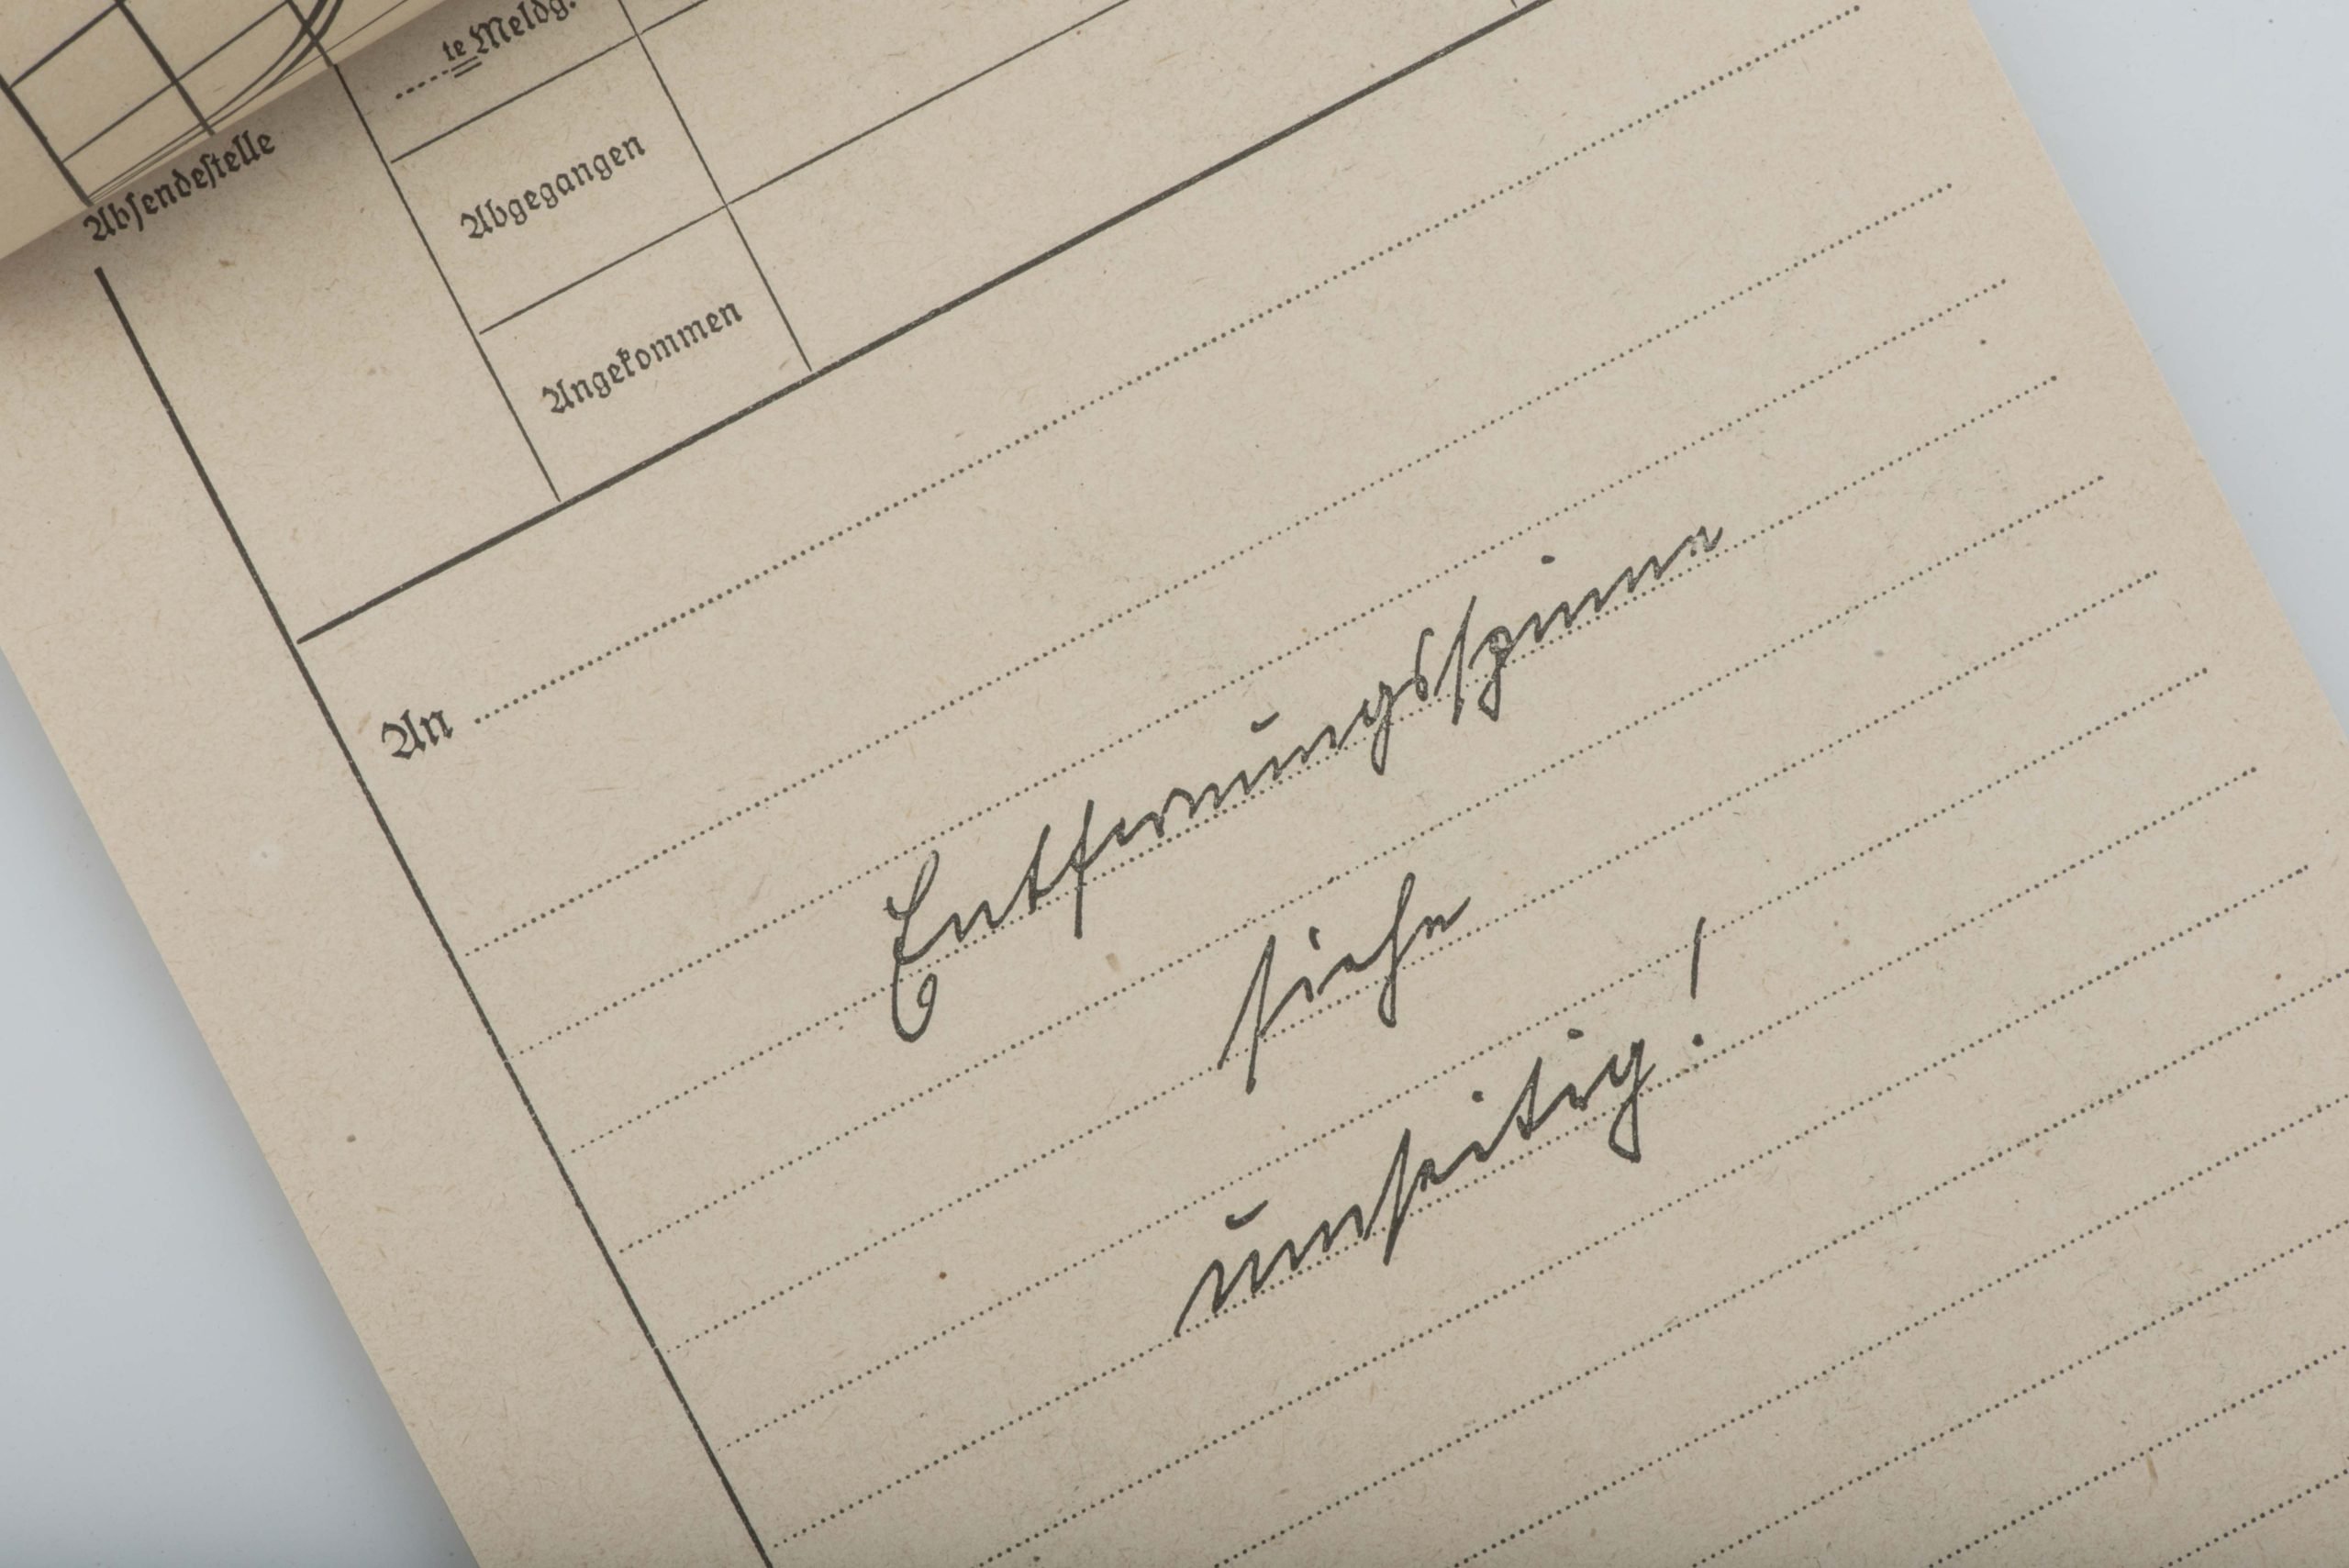 te Meldg.
Absendestelle
Abgegangen
Angekommen
An
Entfernungsspinne
siehe
umseitig!